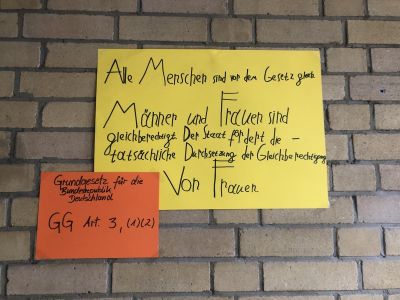 Alle Menschen sind vor dem Gesetz gleich.
Männer und Frauen sind
gleichberechtigt. Der Staat fördert die -
tatsächliche Durchsetzung der Gleichberechtigung
Von Frauen.
Grundgesetz für die
Bundesrepublik
Deutschland
GG Art. 3, (1)(2)